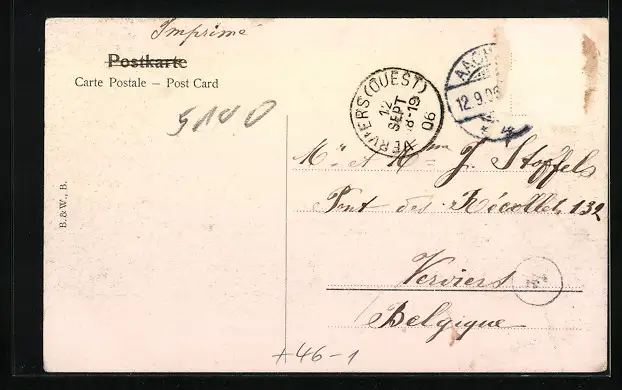 Imprimé
Postkarte
Carte Postale – Post Card
5140
VERVIERS (OUEST)
12
SEPT
8-19
06
AACH
12.9.06
B. & W., B.
Mr et Mme J. Stoffels
Pont des Récollets 132
Verviers
Belgique
+46-1